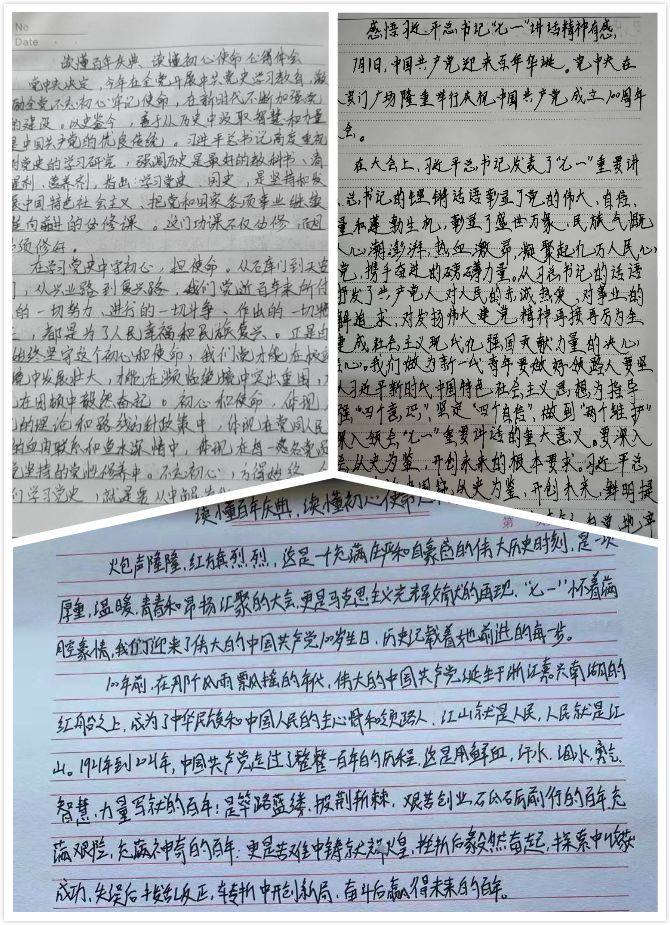 No
Date
读懂百年庆典、读懂初心使命心得体会
党中央决定，今年在全党开展中共党史学习教育，激
励全党不忘初心牢记使命，在新时代不断加强党
的建设。以史鉴今，善于从历史中汲取智慧和力量
是中国共产党的优良传统。习近平总书记高度重视
对党史的学习研究，强调历史是最好的教科书、清
醒剂、营养剂，指出：学习党史、国史，是坚持和发
展中国特色社会主义、把党和国家各项事业继续
推向前进的必修课。这门功课不仅必修，而且
必须修好。
在学习党史中守初心，担使命。从石库门到天安
门，从兴业路到复兴路，我们党近百年来所付
的一切努力、进行的一切斗争、作出的一切牺
牲，都是为了人民幸福和民族复兴。正是由
始终坚守这个初心和使命，我们党才能在极端
境中发展壮大，才能在濒临绝境中突出重围，
在困顿中毅然奋起。初心和使命，体现
的理论和路线方针政策中，体现在党同人民
的血肉联系和鱼水深情中，体现在每一名党员
坚持的党性修养中。不忘初心，方得始终
们学习党史，就是要从中
感悟习近平总书记“七一”讲话精神有感
7月1日，中国共产党迎来百年华诞。党中央在
安门广场隆重举行庆祝中国共产党成立100周年
会。
在大会上，习近平总书记发表了“七一”重要讲
总书记的铿锵话语彰显了党的伟大、自信、
量和蓬勃生机，彰显了盛世万象、民族气概
心潮澎湃，热血激昂，凝聚起亿万人民心
党，携手奋进的磅礴力量。从习总书记的话语
抒发了共产党人对人民的赤诚热爱，对事业的
追求，对发扬伟大建党精神再接再厉为全
建成社会主义现代化强国贡献力量的决心
心。我们做为新一代青年要做好领路人要坚
习近平新时代中国特色社会主义思想为指导
强“四个意识”，坚定“四个自信”，做到“两个维护”
深入领会“七一”重要讲话的重大意义。要深入
会从史为鉴，开创未来的根本要求。习近平总
从史为鉴，开创未来，鲜明提
读懂百年庆典，读懂初心使命
第
炮声隆隆，红旗烈烈，这是一个充满庄严和自豪的伟大历史时刻，是一次
厚重，温暖，青春和昂扬汇聚的大会，更是马克思主义光辉文献的再现，“七一”怀着满
腔豪情，我们迎来了伟大的中国共产党100岁生日，历史记载着她前进的每一步。
100年前，在那个风雨飘摇的年代，伟大的中国共产党诞生于浙江嘉兴南湖的
红船之上，成为了中华民族和中国人民的主心骨和领路人，江山就是人民，人民就是江
山。1921年到2021年，中国共产党走过了整整一百年的历程，这是用鲜血，汗水，泪水，勇气，
智慧，力量写就的百年；是筚路蓝缕，披荆斩棘，艰苦创业，砥砺前行的百年，充
满艰险，充满神奇的百年；更是苦难中铸就辉煌，挫折后毅然奋起，探索中收获
成功，失误后拨乱反正，转折中开创新局，奋斗后赢得未来的百年。